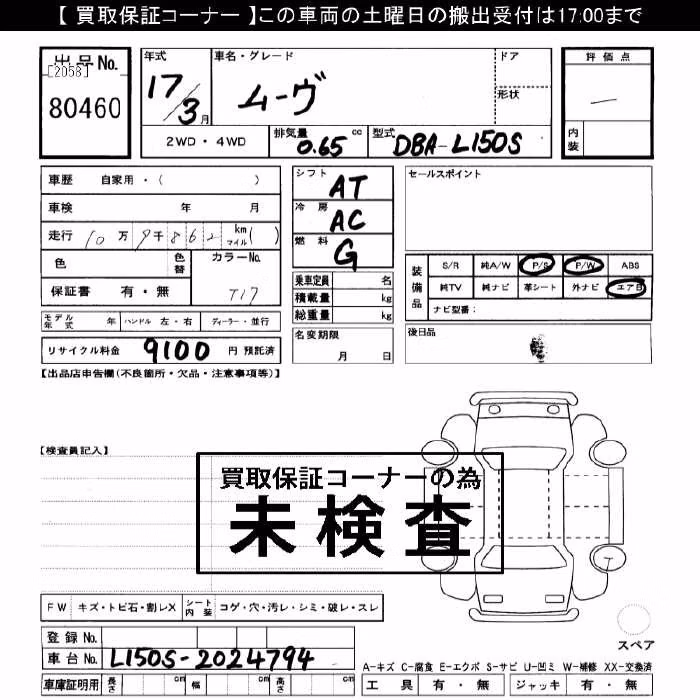 【 買取保証コーナー 】この車両の土曜日の搬出受付は17:00まで
出品No.
[2058]
80460
年式
17/3月
車名・グレード
ムーヴ
ドア
形状
評価点
―
内装
2WD・4WD
排気量 0.65 cc
型式 DBA-L150S
車歴 自家用・( )
車検 年 月
走行 10万9千862 km マイル( )
色 色替
カラーNo.
T17
保証書 有・無
モデル年式 年 ハンドル 左・右 ディーラー・並行
リサイクル料金 9100 円 預託済
シフト AT
冷房 AC
燃料 G
乗車定員 名
積載量 kg
総重量 kg
名変期限
月 日
セールスポイント
装備品
S/R 純A/W P/S P/W ABS
純TV 純ナビ 革シート 外ナビ エアB
ナビ型番：
後日品
【出品店申告欄(不良箇所・欠品・注意事項等)】
【検査員記入】
買取保証コーナーの為
未検査
FW キズ・トビ石・割レX シート内装 コゲ・穴・汚レ・シミ・破レ・スレ
登録No.
車台No. L150S-2024794
車庫証明用 長さ cm 幅 cm 高さ cm
スペア
A-キズ C-腐食 E-エクボ S-サビ U-凹ミ W-補修 XX-交換済
工具 有・無 ジャッキ 有・無